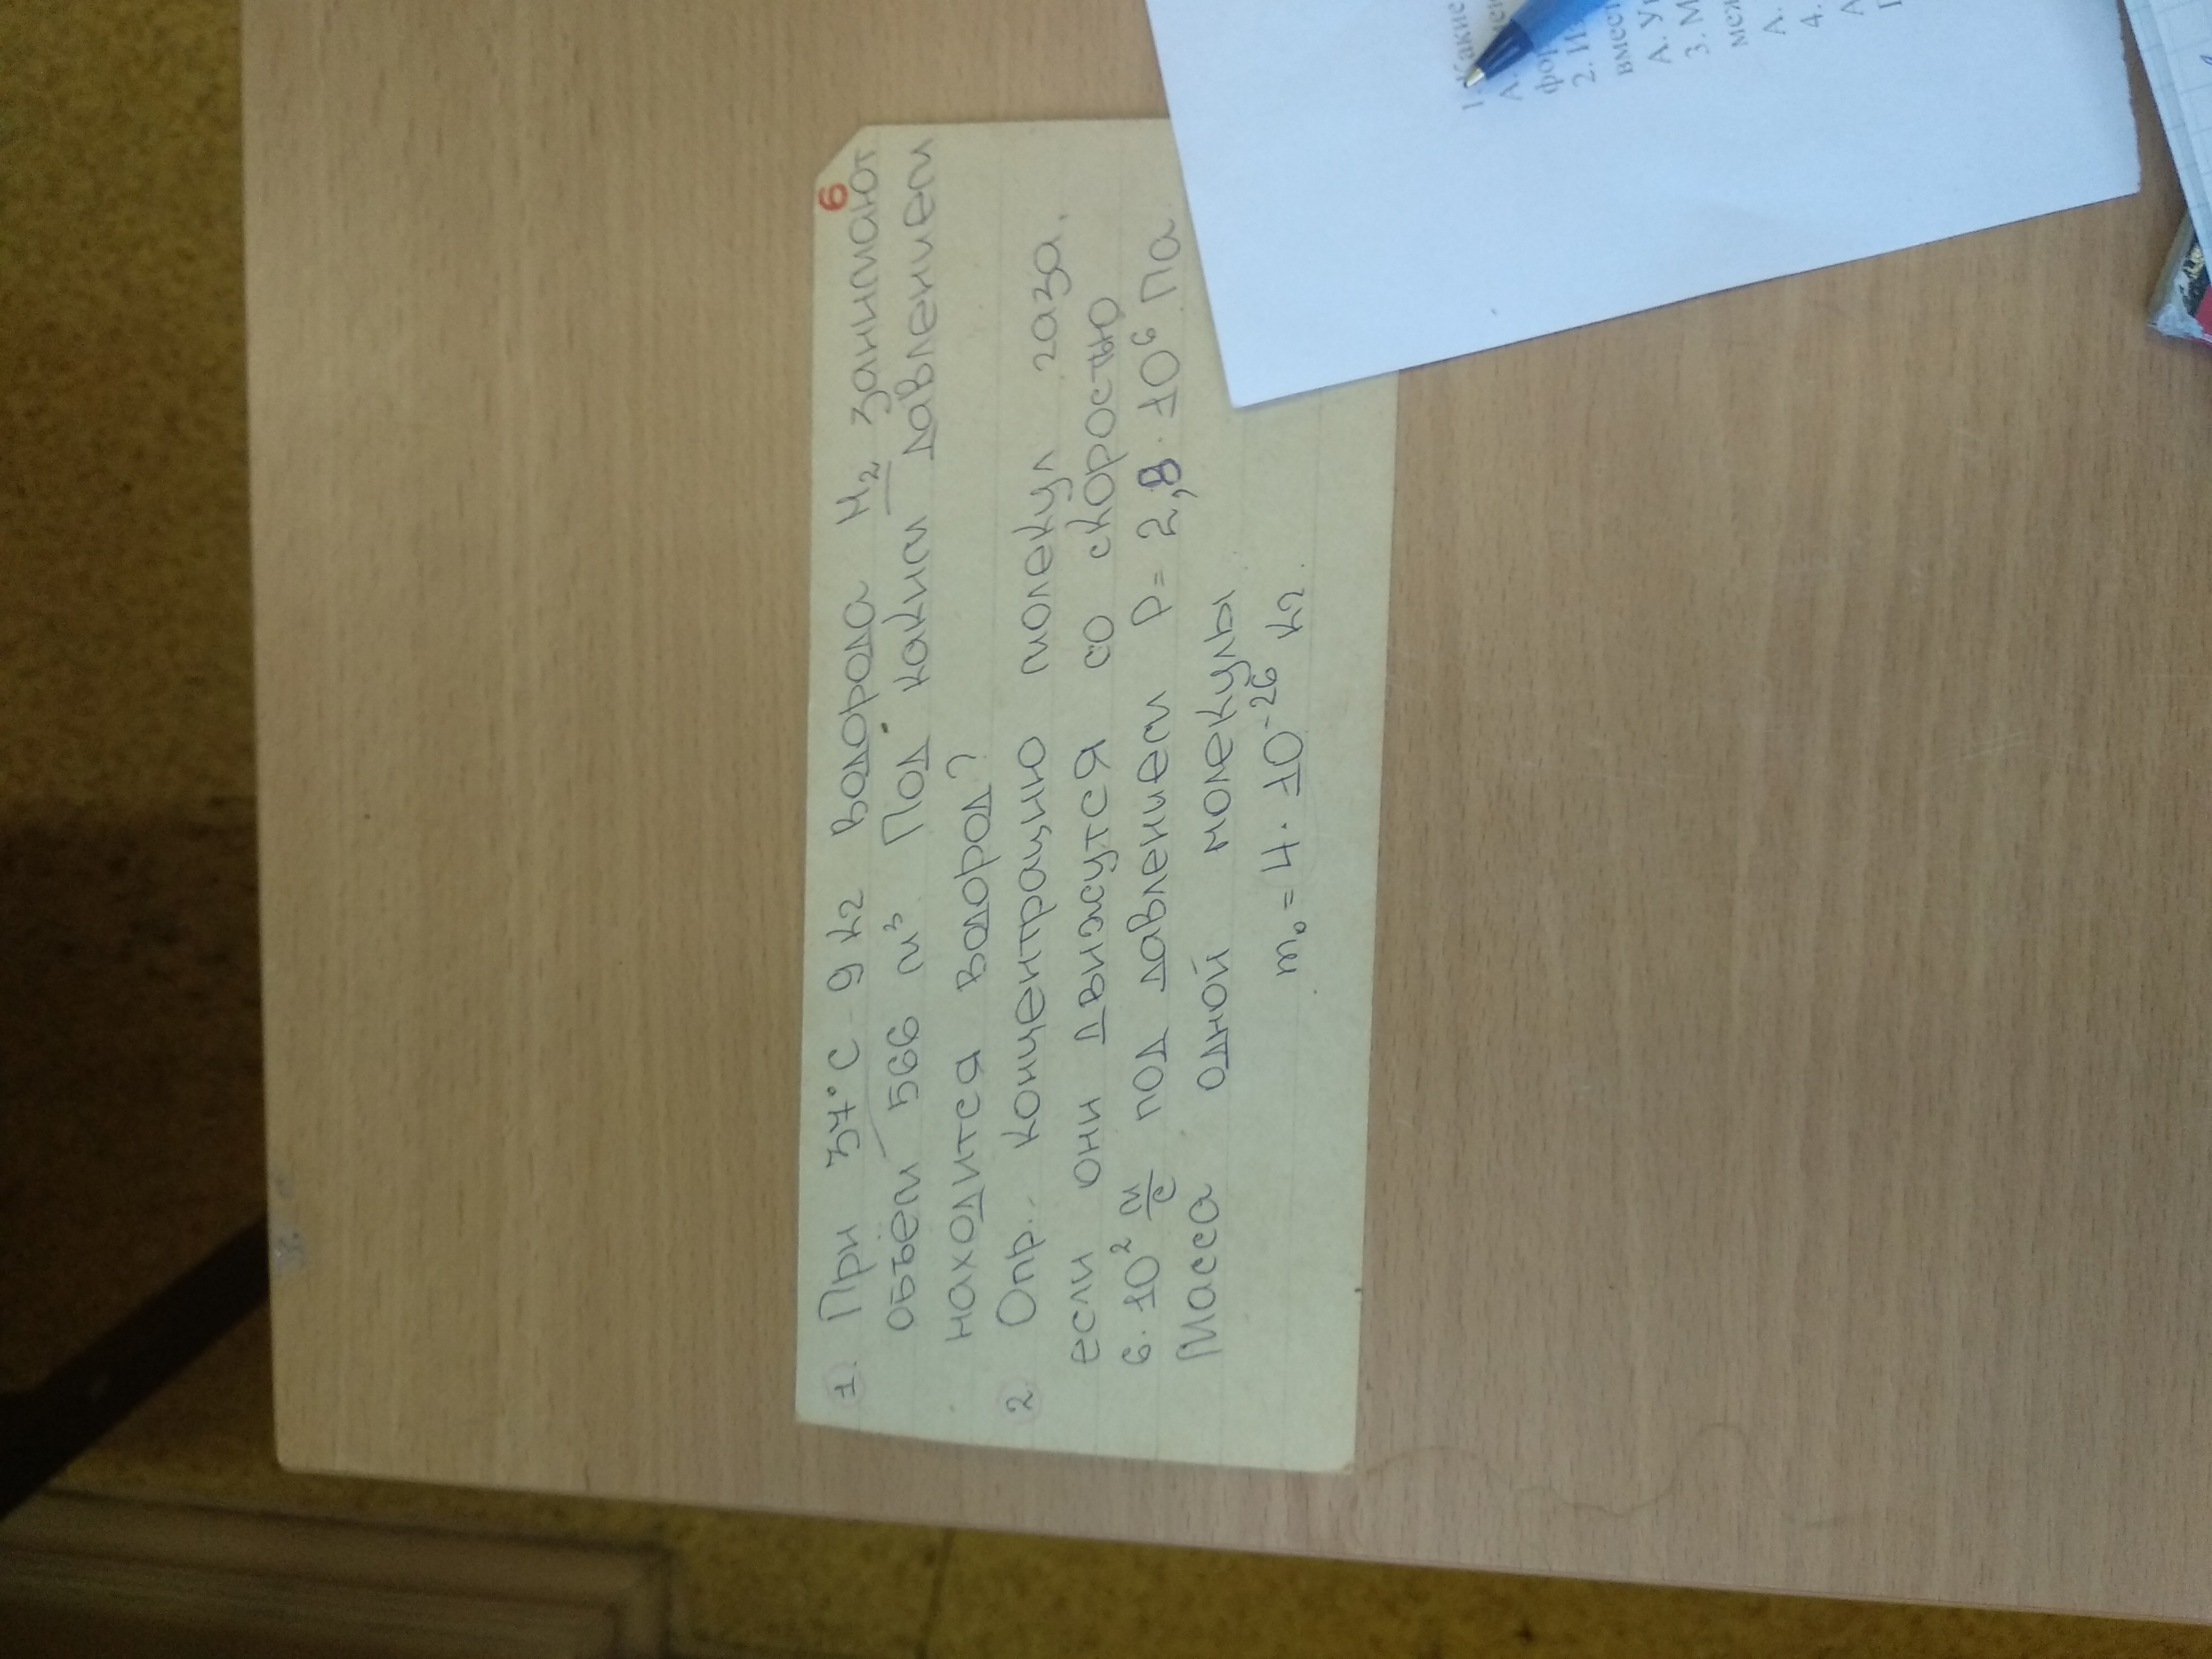 6
1. При 37°С 9 кг водорода H₂ занимают
объём 566 м³. Под каким давлением
находится водород?
2. Опр. концентрацию молекул газа,
если они движутся со скоростью
6·10² м/с под давлением p = 2,8·10⁶ Па
Масса одной молекулы
m₀ = 4·10⁻²⁶ кг.
1. Какие
А.
2.
вмест
А.
3. М
меж
А.
4.
А